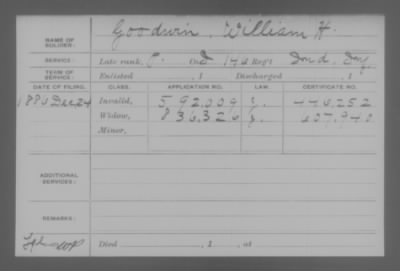 NAME OF SOLDIER: Goodwin, William H.
SERVICE: Late rank, P. Co. D 146 Reg't Ind. Inf.
TERM OF SERVICE: Enlisted , 1 Discharged , 1
DATE OF FILING. CLASS. APPLICATION NO. LAW. CERTIFICATE NO.
1886 Dec. 24 Invalid, 592,009 446,252
Widow, 836,326 607,940
Minor,
ADDITIONAL SERVICES:
REMARKS:
Died , 1 , at